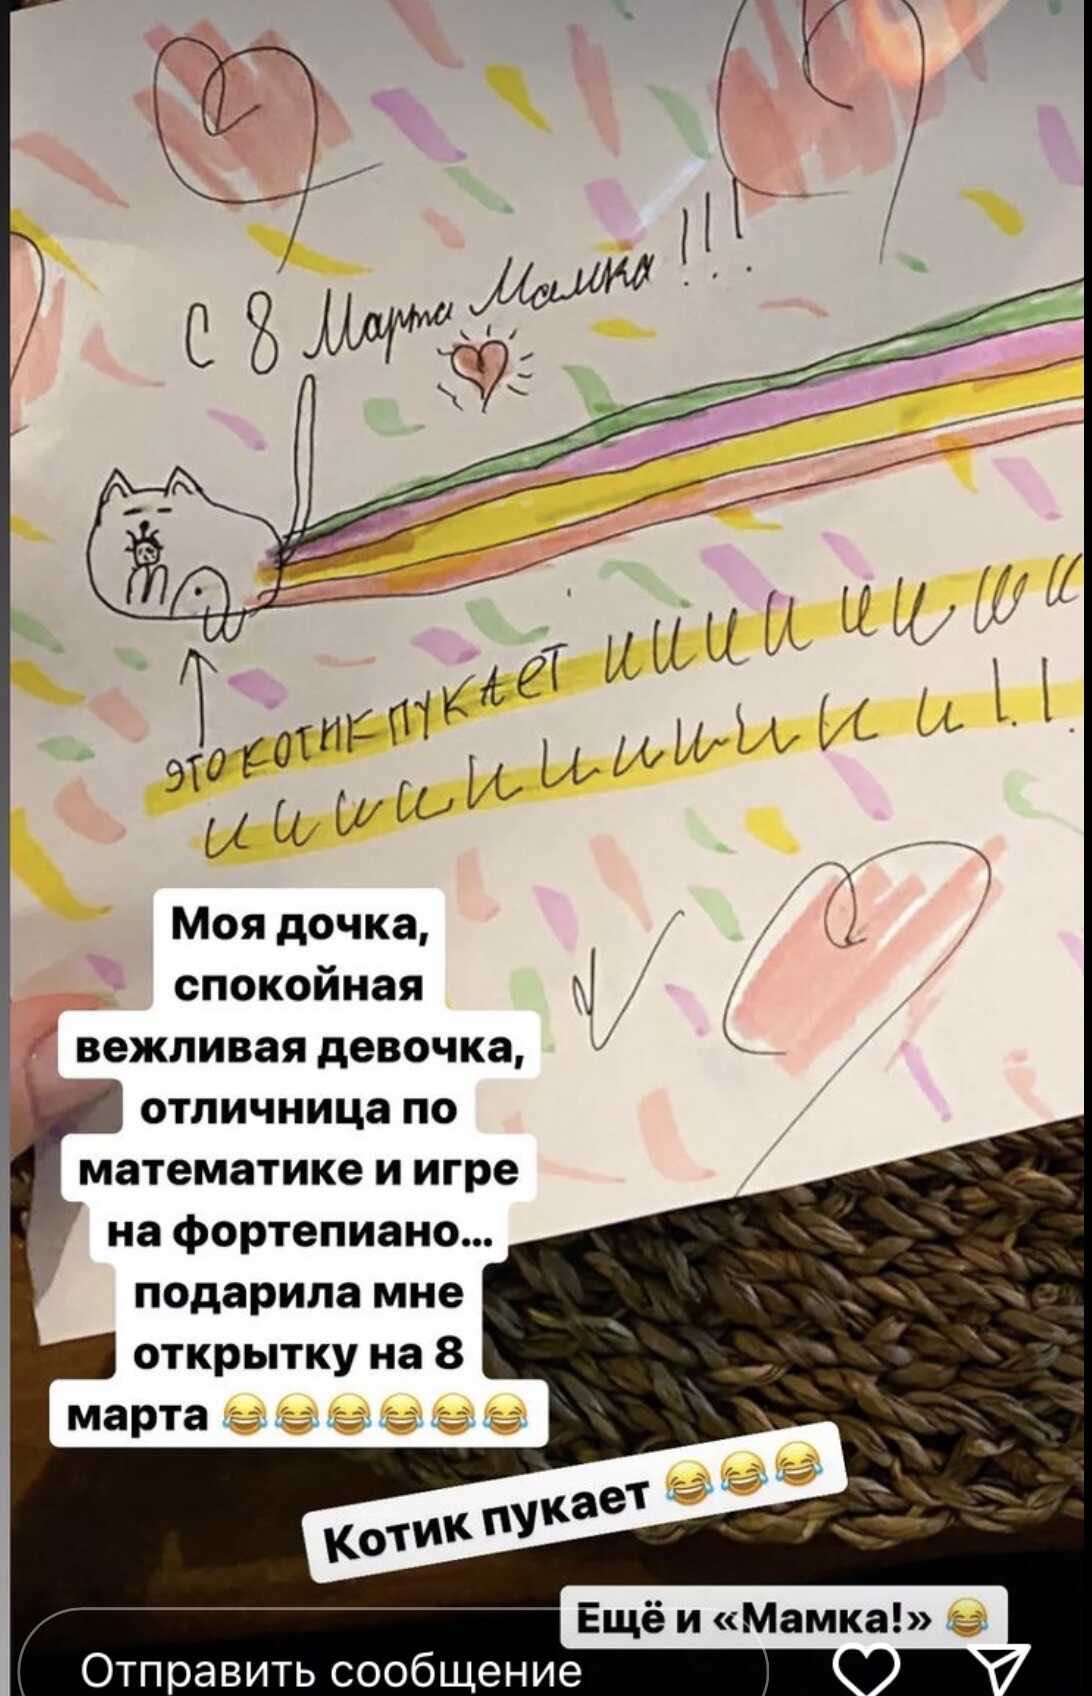 С 8 Марта Мамка!!!
ЭТО КОТИК ПУКАЕТ ИИИИИИИИИИ
ИИИИИИИИИИИИИ!!
Моя дочка,
спокойная
вежливая девочка,
отличница по
математике и игре
на фортепиано...
подарила мне
открытку на 8
марта 😂😂😂😂😂😂
Котик пукает 😂😂😂
Ещё и «Мамка!» 😂
Отправить сообщение